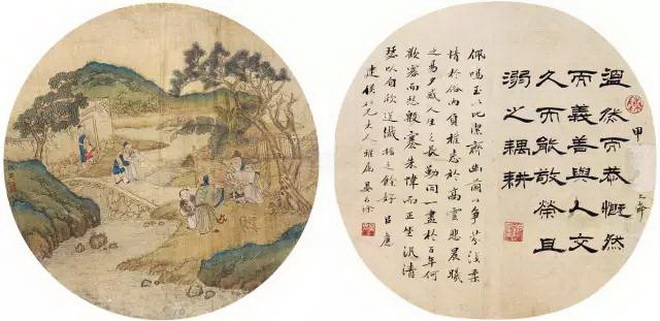 溫然而恭慨然
而義善與人交
久而能敬榮且
溺之耦耕
甲
佩鳴玉以比潔齊幽蘭以爭芬淡柔
情於俗內負雅志於高雲悲晨曦
之易夕感人生之長勤同一盡於百年何
歡寡而愁殷褰朱幃而正坐汎清
瑟以自欣送纖指之餘好
兄大人雅屬